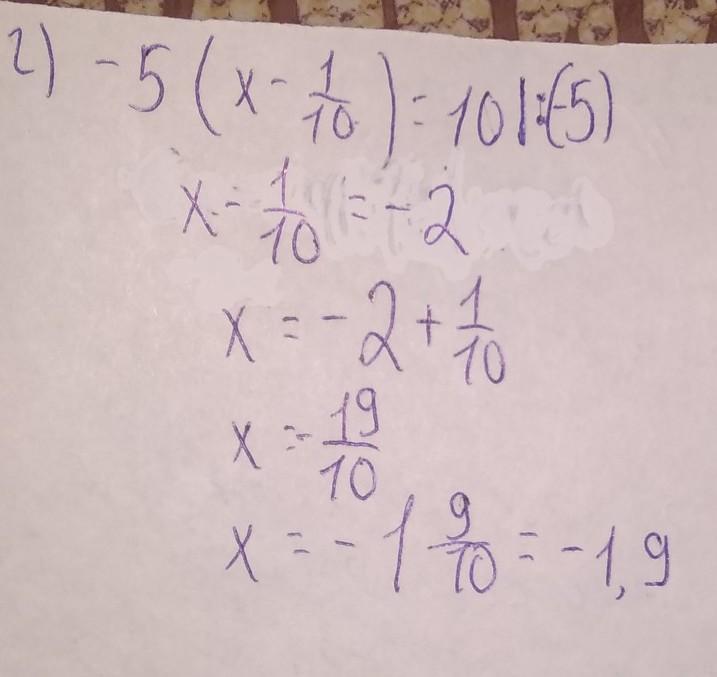 г) -5 ( x - 1/10 ) = 10 |:(-5)
x - 1/10 = -2
x = -2 + 1/10
x = - 19/10
x = -1 9/10 = -1,9